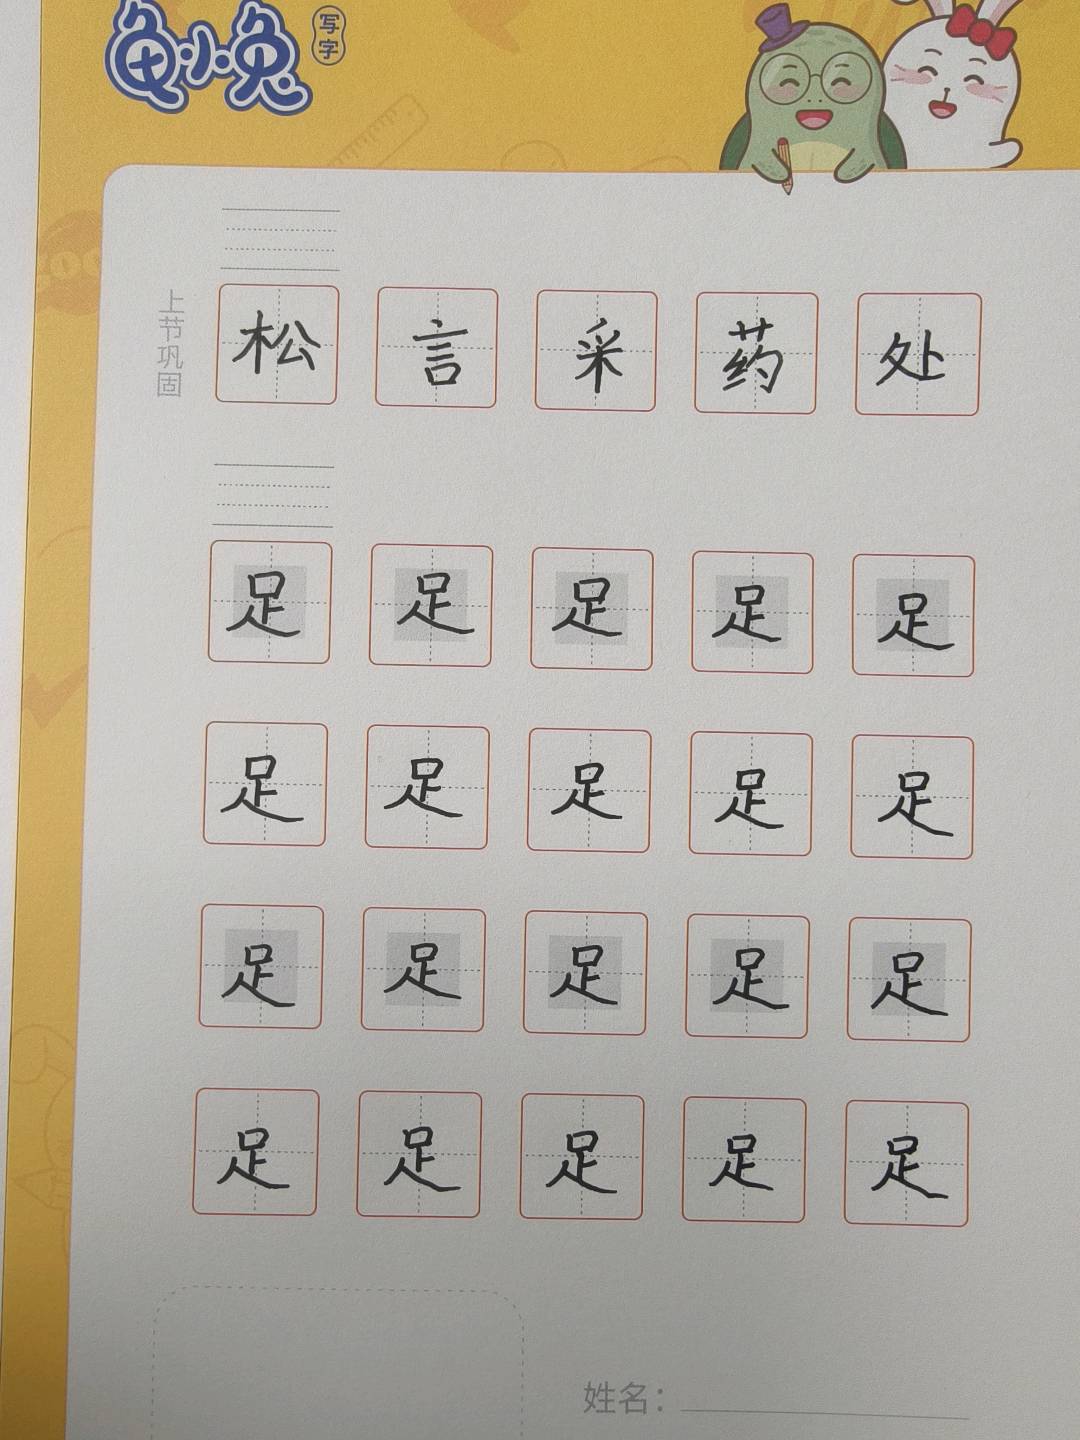 龟小兔
写字
上节巩固
松 言 采 药 处
足 足 足 足 足
足 足 足 足 足
足 足 足 足 足
足 足 足 足 足
姓名：